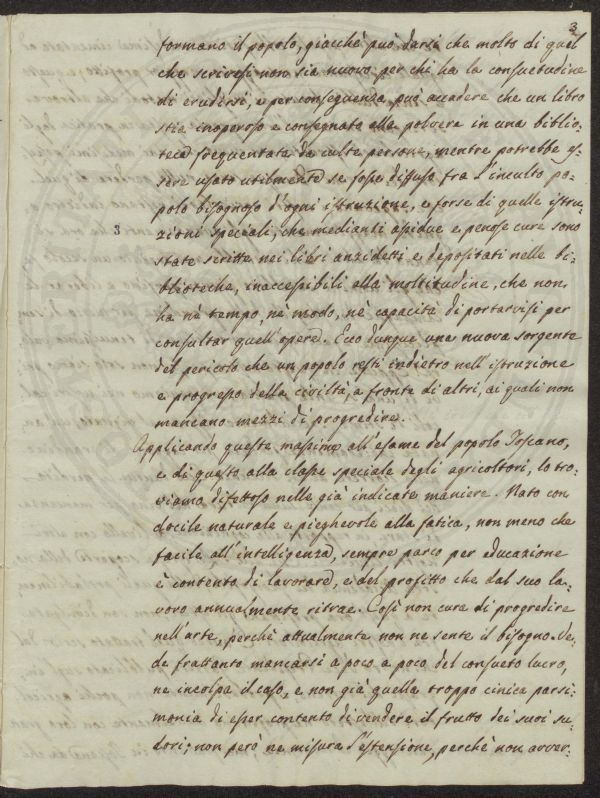 3
formano il popolo, giacchè può darsi che molto di quel
che scrivesi non sia nuovo per chi ha la consuetudine
di erudirsi, e per conseguenza può accadere che un libro
stia inoperoso e consegnato alla polvere in una biblio-
teca frequentata da culte persone, mentre potrebbe es-
sere usato utilmente se fosse diffuso fra l'inculto po-
polo bisognoso d'ogni istruzione, e forse di quelle istru-
3
zioni speciali, che mediante assidue e penose cure sono
state scritte nei libri anzidetti e depositati nelle bi-
blioteche, inaccessibili alla moltitudine, che non
ha nè tempo, nè modo, nè capacità di portarvisi per
consultar quell'opere. Ecco dunque una nuova sorgente
del pericolo che un popolo resti indietro nell'istruzione
e progresso della civiltà, a fronte di altri, ai quali non
mancano mezzi di progredire.
Applicando queste massime all'esame del popolo Toscano,
e di questo alla classe speciale degli agricoltori, lo tro-
viamo difettoso nelle già indicate maniere. Nato con
docile naturale e pieghevole alla fatica, non meno che
facile all'intelligenza, sempre parco per educazione
è contento di lavorare, e del profitto che dal suo la-
voro annualmente ritrae. Così non cura di progredire
nell'arte, perchè attualmente non ne sente il bisogno. Ve-
de frattanto mancarsi a poco a poco del consueto lucro,
ne incolpa il caso, e non già quella troppo cinica parsi-
monia di esser contento di vendere il frutto dei suoi su-
dori; non però ne misura l'estensione, perchè non avver-